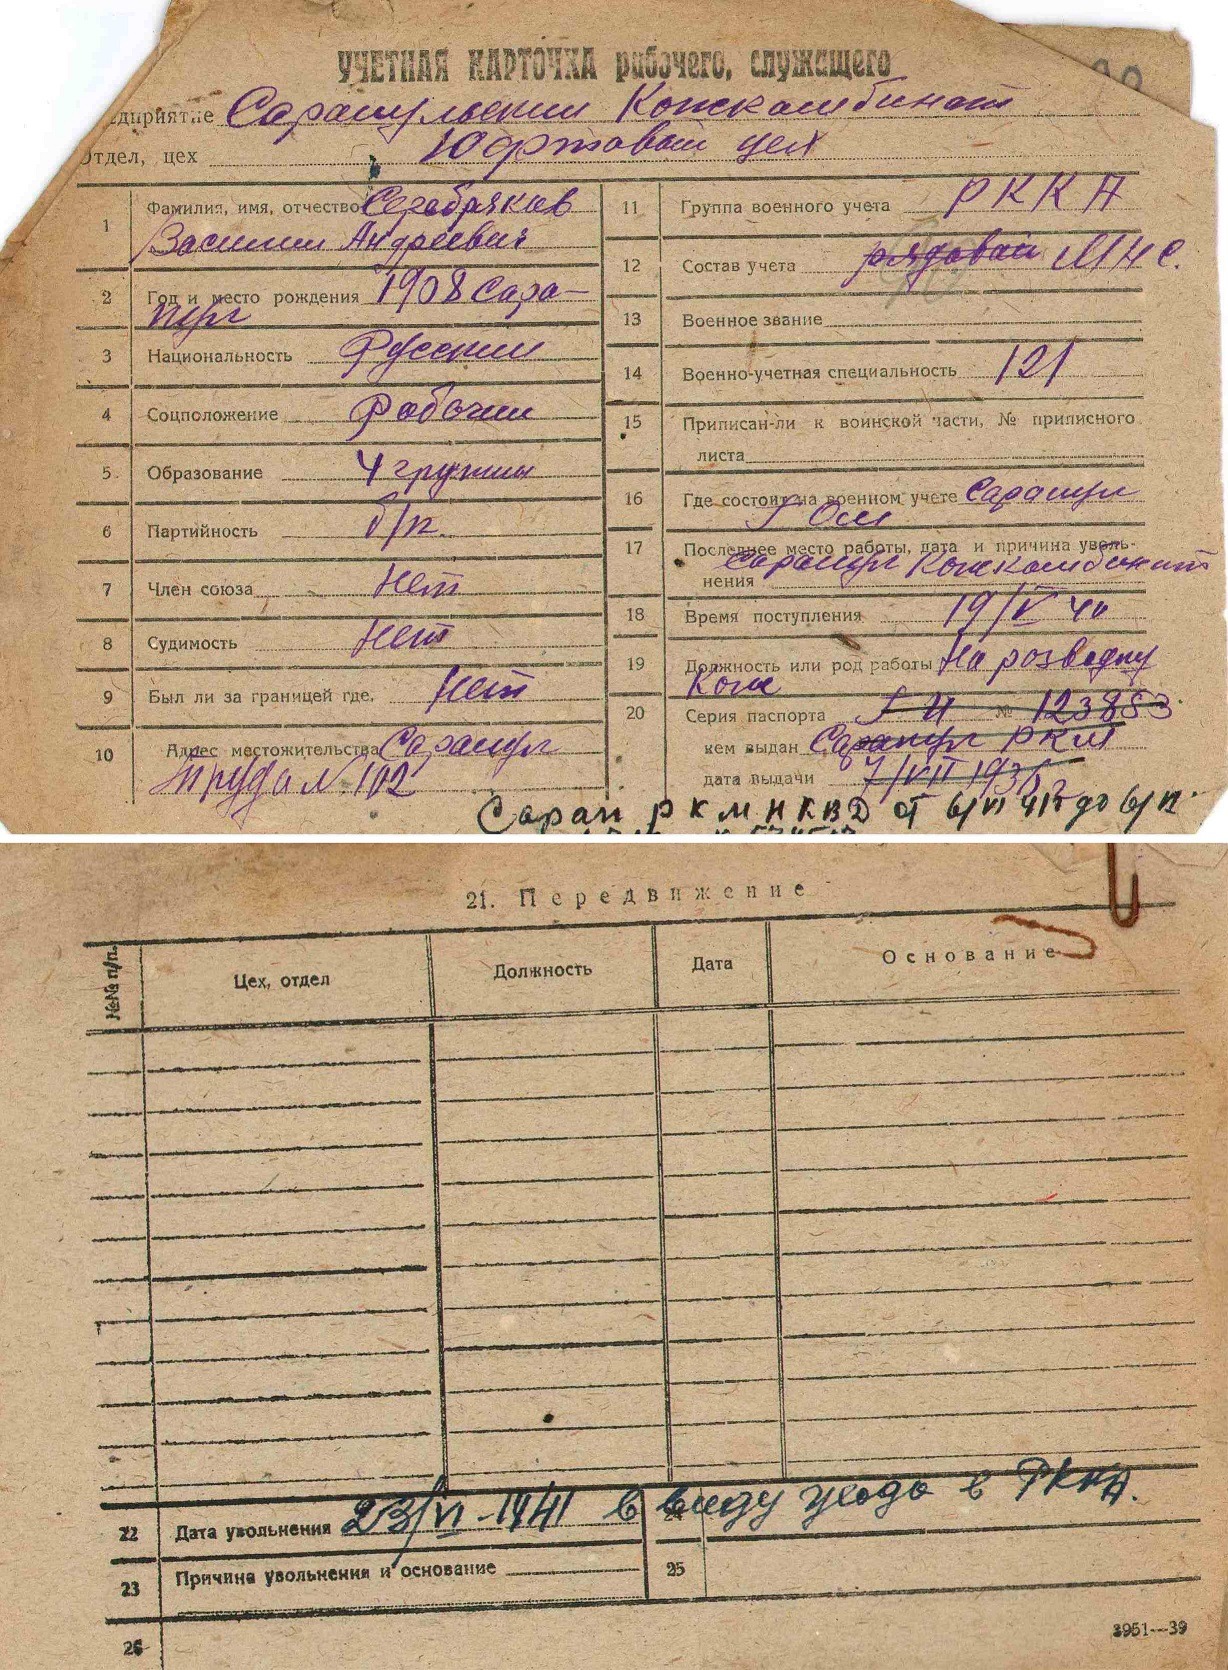 УЧЕТНАЯ КАРТОЧКА рабочего, служащего
едприятие Сарапульский Кожкомбинат
Отдел, цех Юфтовый цех
1 Фамилия, имя, отчество Серебряков
Василий Андреевич
2 Год и место рождения 1908 Сара-
пул
3 Национальность Русский
4 Соцположение Рабочий
5 Образование 4 группы
6 Партийность б/п.
7 Член союза Нет
8 Судимость Нет
9 Был ли за границей где. Нет
10 Адрес местожительства Сарапул
Труда № 102
11 Группа военного учета РККА
12 Состав учета рядовой МНС.
13 Военное звание
14 Военно-учетная специальность 121
15 Приписан-ли к воинской части, № приписного
листа
16 Где состоит на военном учете Сарапул
17 Последнее место работы, дата и причина уволь-
нения Сарапул Кожкомбинат
18 Время поступления 19/V 40
19 Должность или род работы На разводку
Кож
20 Серия паспорта № 123853
кем выдан Сарапул РКМ
дата выдачи 7/VII 1936
Сарап РКМ НКВД от 6/VI 41 до 6/
21. Передвижение
№№ п/п. Цех, отдел Должность Дата Основание
22 Дата увольнения 23/VI-1941 в виду ухода в РККА.
24
23 Причина увольнения и основание
25
26
3951—39